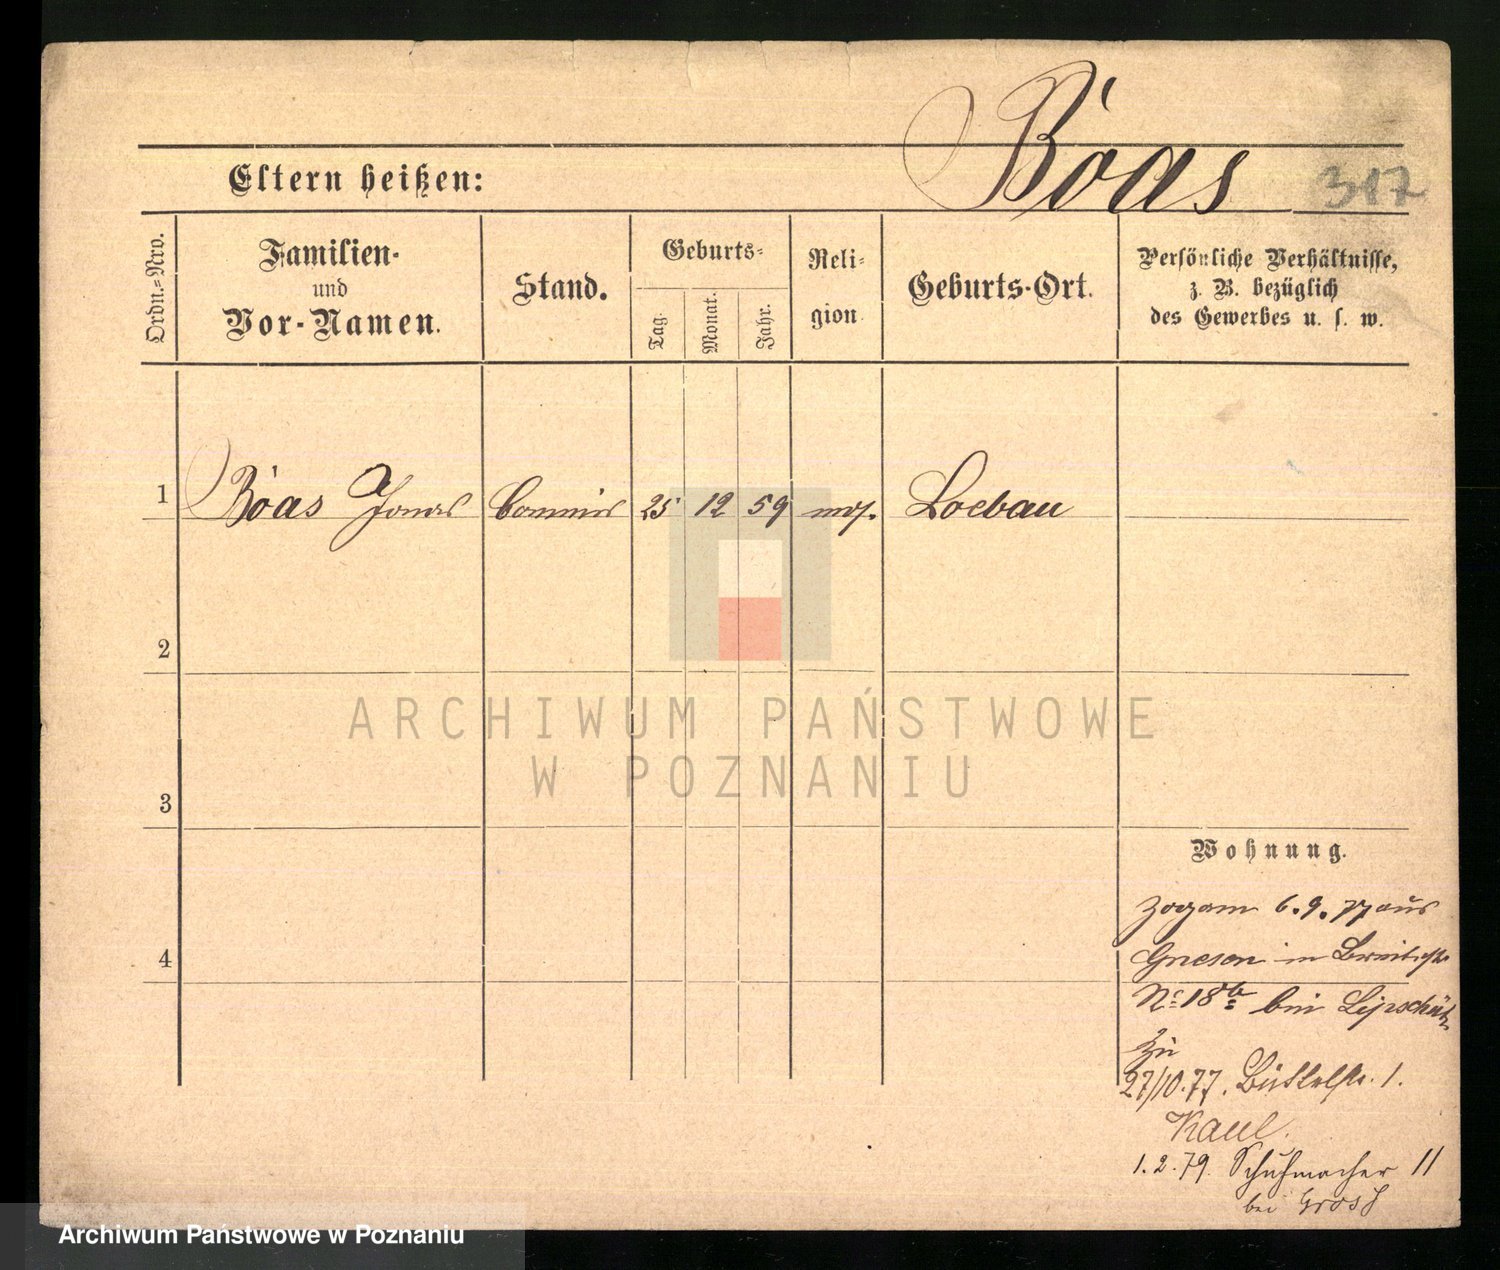 Böas
317
Eltern heißen:
Ordn.-Nro.
Familien-
und
Vor-Namen.
Stand.
Geburts-
Tag.
Monat.
Jahr.
Reli-
gion
Geburts-Ort.
Persönliche Verhältnisse,
z. B. bezüglich
des Gewerbes u. s. w.
1 Böas Jonas Commis 25 12 59 mos. Loebau
2
3
4
ARCHIWUM PAŃSTWOWE
W POZNANIU
Wohnung.
zog am 6.9.77 aus
Gnesen in Breitestr.
No 18b bei Lipschütz
zu
27/10.77. Büttelstr. 1.
Kaul.
1.2.79. Schuhmacher 11
bei Grosz
Archiwum Państwowe w Poznaniu